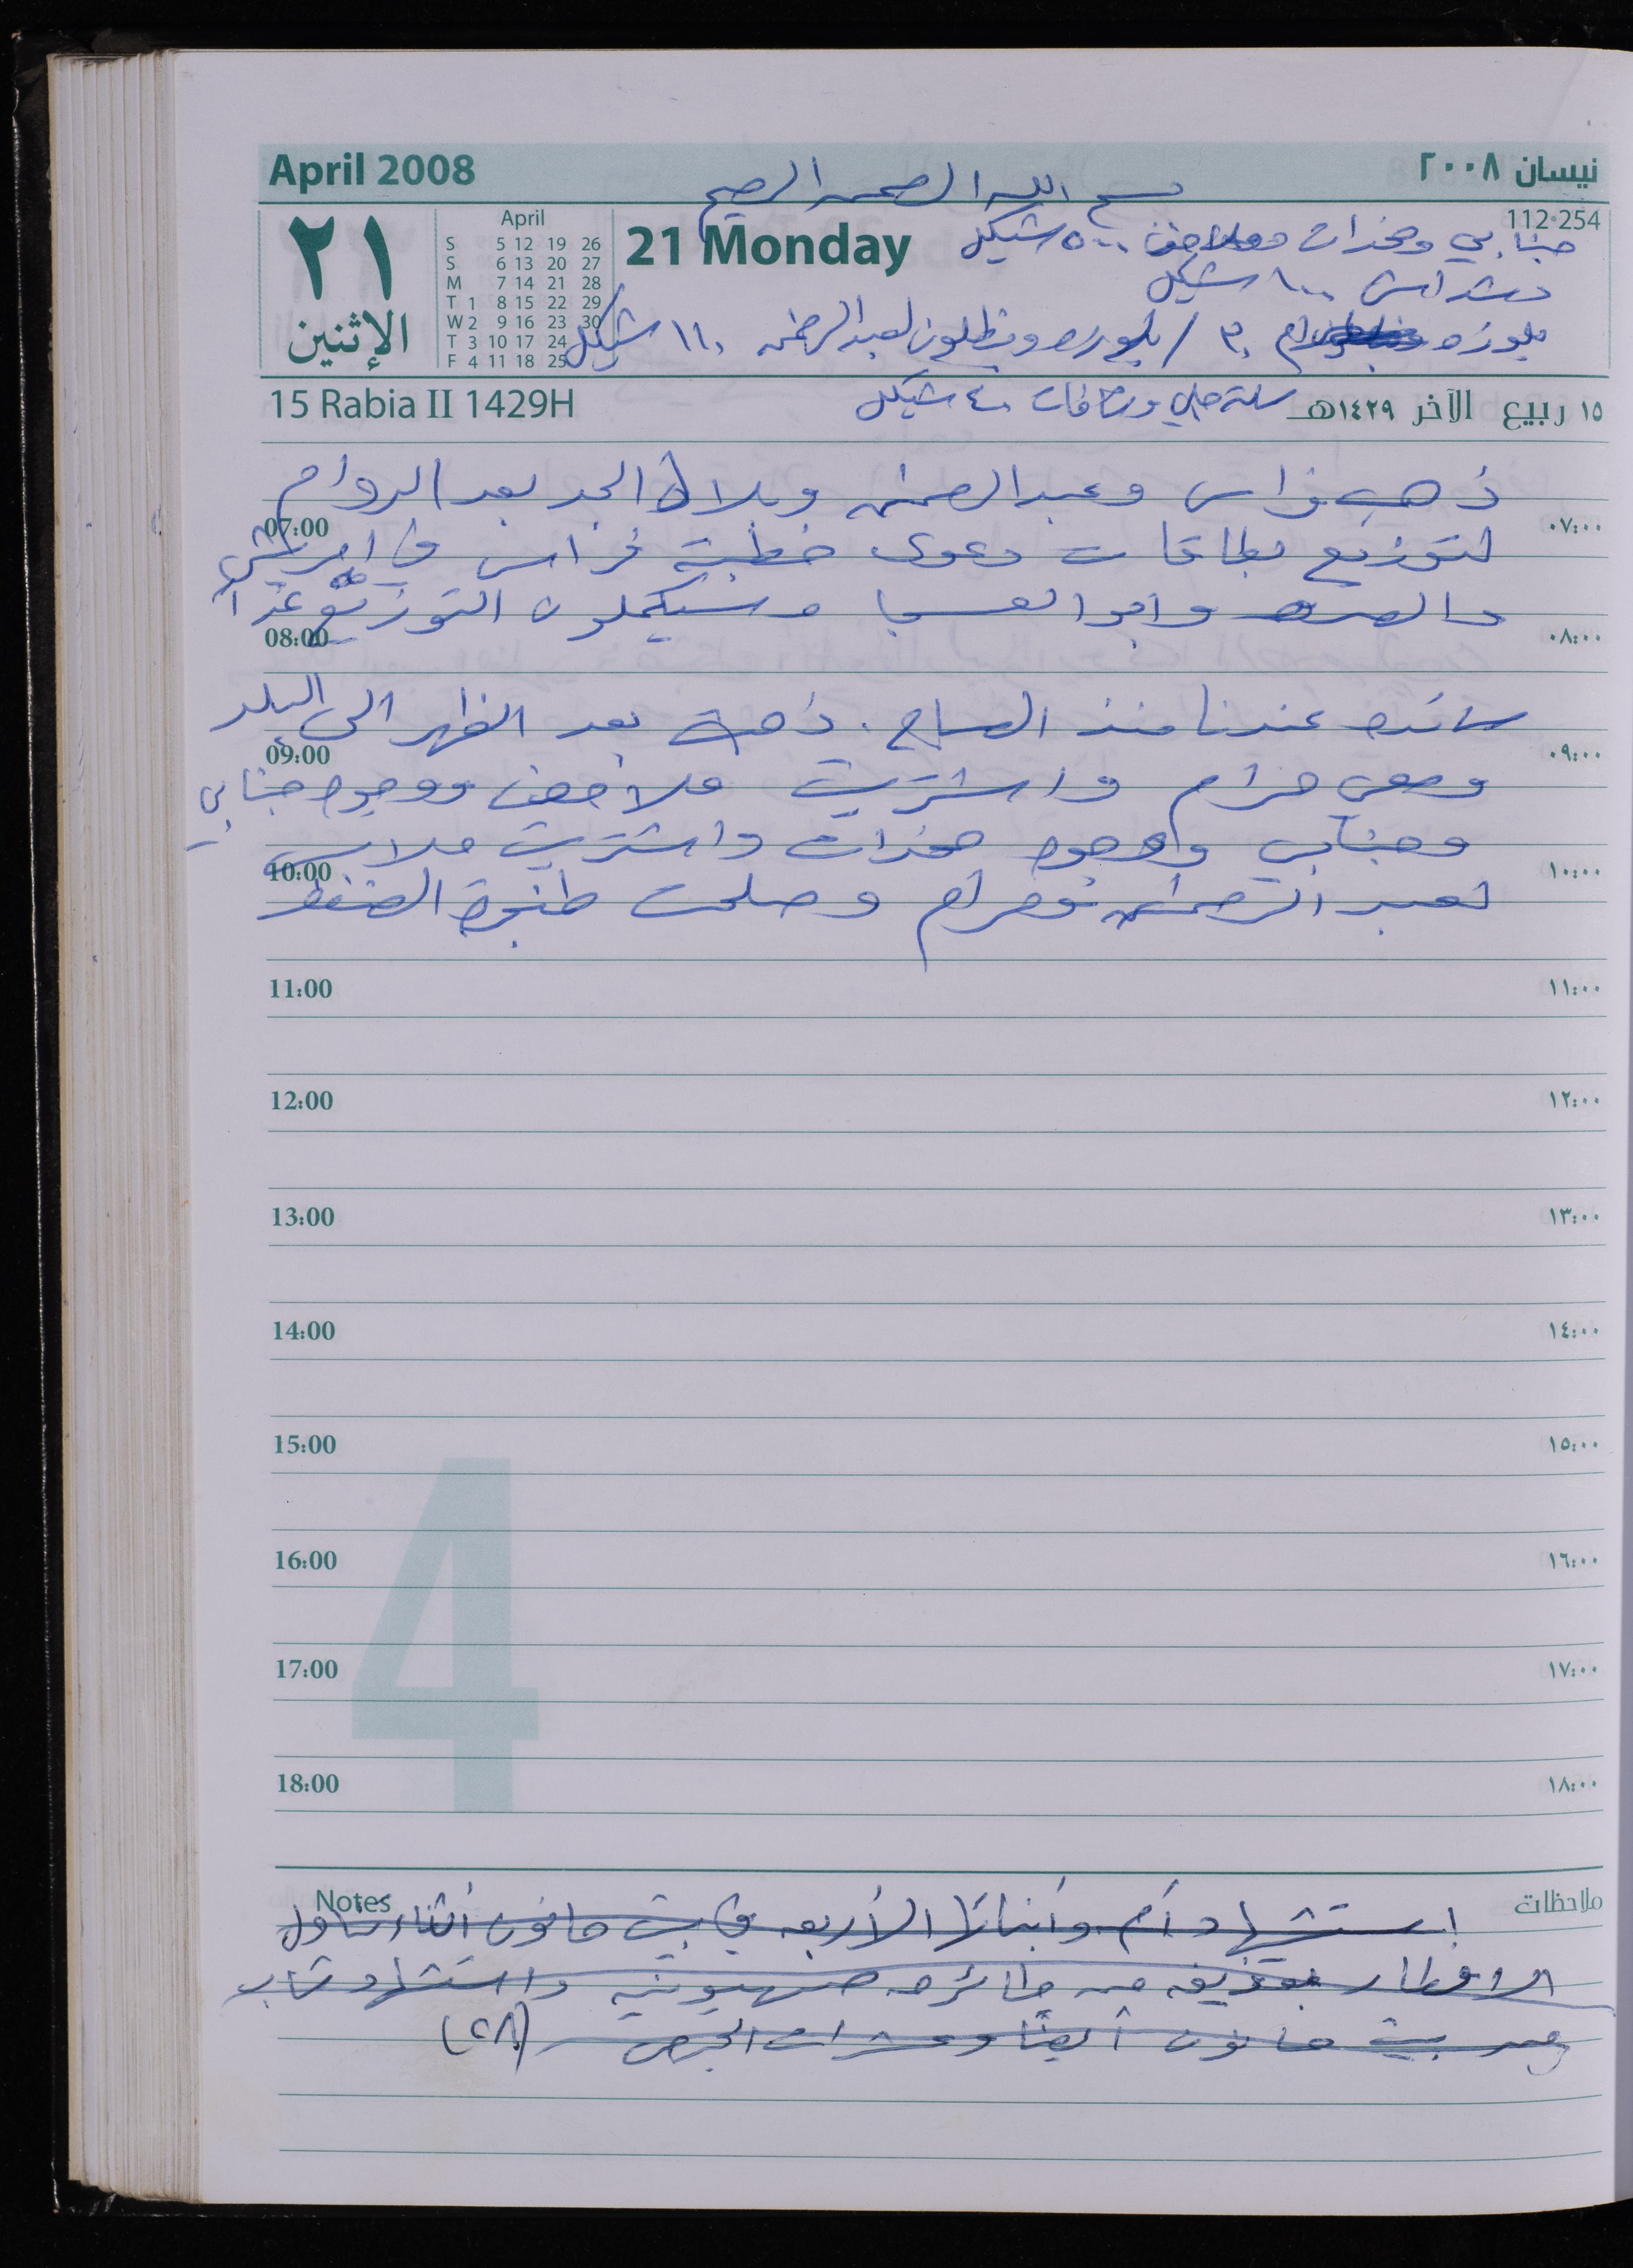 April 2008
نيسان ٢٠٠٨
بسم الله الرحمن الرحيم
112-254
٢١
الإثنين
April
S 5 12 19 26
S 6 13 20 27
M 7 14 21 28
T 1 8 15 22 29
W 2 9 16 23 30
T 3 10 17 24
F 4 11 18 25
21 Monday
جنابي ومخدات وملاحف ٥٠٠ شيكل
١٠٠٠ شيكل
بلوزه مرام ٣٠ / بلوزه وبنطلون لعبد الرحمن ١١٠ شيكل
15 Rabia II 1429H
١٥ ربيع الآخر ١٤٢٩هـ
٤٠ شيكل
ذهب فراس وعبد الرحمن وبلال الجد بعد الدوام
07:00 ٠٧:٠٠
لتوزيع بطاقات دعوى خطبة فراس في
وسيكملون التوزيع غداً
08:00 ٠٨:٠٠
سائده عندنا منذ الصباح. ذهبت بعد الظهر الى البلد
09:00 ٠٩:٠٠
ومعي مرام واشتريت ملاحف ووجوه جنابي
وجنابي ووجوه مخدات واشتريت ملابس
10:00 ١٠:٠٠
لعبد الرحمن ومرام وصلحت طنجرة الضغط
11:00 ١١:٠٠
12:00 ١٢:٠٠
13:00 ١٣:٠٠
14:00 ١٤:٠٠
15:00 ١٥:٠٠
16:00 ١٦:٠٠
17:00 ١٧:٠٠
18:00 ١٨:٠٠
4
Notes ملاحظات
إستشهاد أم وأبنائها الأربعه في بيت حانون أثناء تناول
الافطار بقذيفه من طائره صهيونيه واستشهاد شاب
من بيت حانون أيضاً وعشرات الجرحى (٢٨)